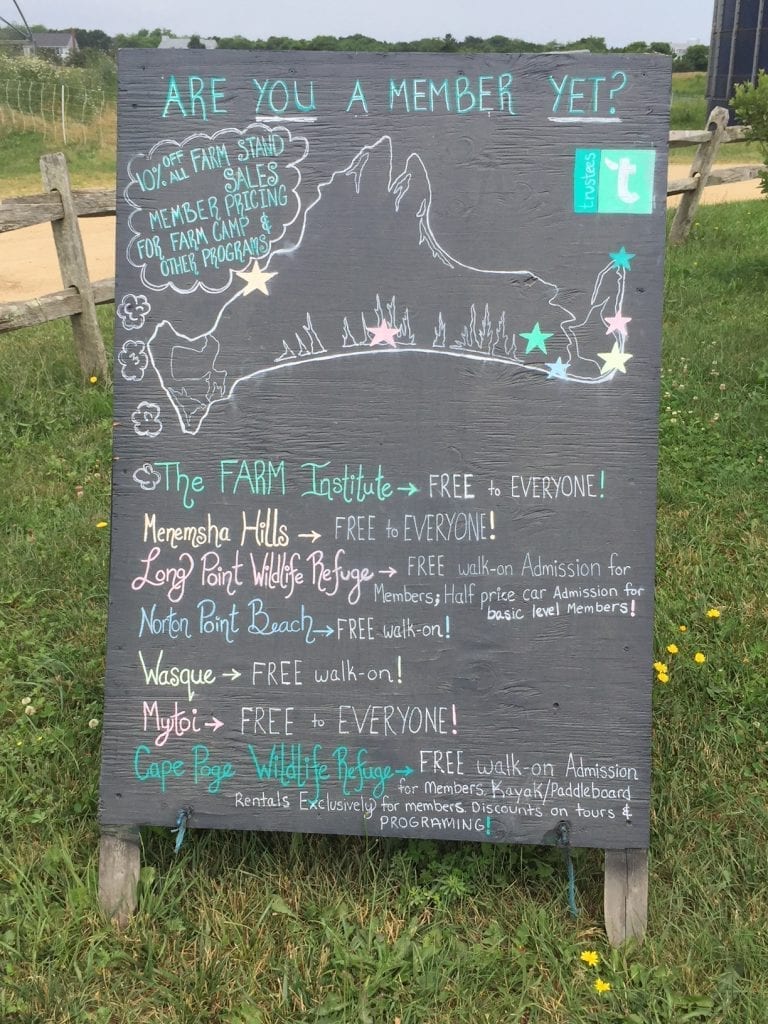 ARE YOU A MEMBER YET?
10% OFF
ALL FARM STAND
SALES
MEMBER PRICING
FOR FARM CAMP &
OTHER PROGRAMS
trustees
t
The FARM Institute → FREE to EVERYONE!
Menemsha Hills → FREE to EVERYONE!
Long Point Wildlife Refuge → FREE walk-on Admission for
Members; Half price car Admission for
basic level Members!
Norton Point Beach → FREE walk-on!
Wasque → FREE walk-on!
Mytoi → FREE to EVERYONE!
Cape Poge Wildlife Refuge → FREE walk-on Admission
for Members. Kayak/Paddleboard
Rentals Exclusively for members. Discounts on tours &
PROGRAMING!